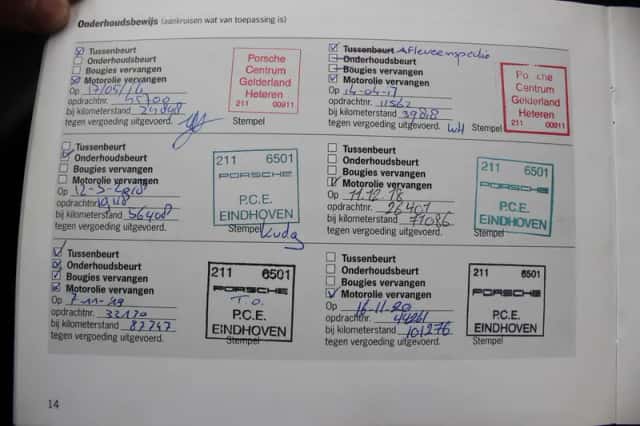 Onderhoudsbewijs (aankruisen wat van toepassing is)
Tussenbeurt
Onderhoudsbeurt
Bougies vervangen
Motorolie vervangen
Op 17/05/16
opdrachtnr. 45700
bij kilometerstand
tegen vergoeding uitgevoerd.
Stempel
Porsche
Centrum
Gelderland
Heteren
211 00911
Tussenbeurt Afleverinspectie
Onderhoudsbeurt
Bougies vervangen
Motorolie vervangen
Op 14-04-17
opdrachtnr. 11562
bij kilometerstand 39818
tegen vergoeding uitgevoerd.
Stempel
Po sche
Centrum
Gelderland
Heteren
211 00911
Tussenbeurt
Onderhoudsbeurt
Bougies vervangen
Motorolie vervangen
Op 12-3-2018
opdrachtnr.
bij kilometerstand 56408
tegen vergoeding uitgevoerd.
Stempel
211 6501
PORSCHE
P.C.E.
EINDHOVEN
Tussenbeurt
Onderhoudsbeurt
Bougies vervangen
Motorolie vervangen
Op 11.12.18
opdrachtnr. 26401
bij kilometerstand 71086
tegen vergoeding uitgevoerd.
Stempel
211 6501
PORSCHE
P.C.E.
EINDHOVEN
Tussenbeurt
Onderhoudsbeurt
Bougies vervangen
Motorolie vervangen
Op 7-11-19
opdrachtnr. 33130
bij kilometerstand 87747
tegen vergoeding uitgevoerd.
Stempel
211 6501
PORSCHE
T.O.
P.C.E.
EINDHOVEN
Tussenbeurt
Onderhoudsbeurt
Bougies vervangen
Motorolie vervangen
Op 16-11-20
opdrachtnr. 44261
bij kilometerstand 101276
tegen vergoeding uitgevoerd.
Stempel
211 6501
PORSCHE
P.C.E.
EINDHOVEN
14